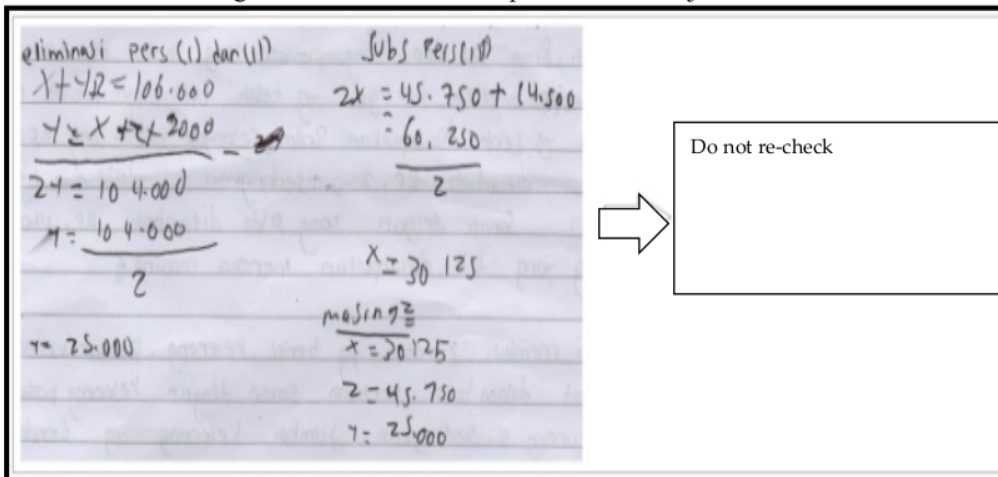 eliminasi pers (1) dan (11)
X + Y + Z = 106.000
Y = X + Z + 2000
2Y = 104.000
Y = 104.000
2
Y = 25.000
Subs Pers (111)
2X = 45.750 + 14.500
= 60.250
2
X = 30 125
masing2
x = 30125
Z = 45.750
Y = 25.000
Do not re-check